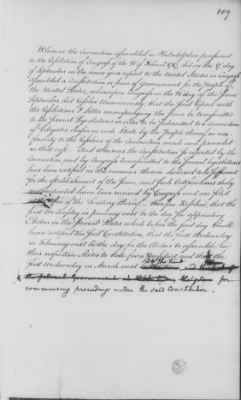 109
Whereas the Convention assembled in Philadelphia pursuant
to the Resolution of Congress of the 21st of Feby 1787 did on the 17th
of September in the same year report to the United States in Congress
Assembled a Constitution or form of Government for the People of
the United States, whereupon Congress on the 28 day of the same
September did Resolve Unanimously that the said Report with
the Resolutions & letter accompanying the same be transmitted
to the several Legislatures in order to be submitted to a Convention
of Delegates chosen in each State by the People thereof in con
formity to the Resolves of the Convention made and provided
in that case. And whereas the Constitution so reported by the
Convention and by Congress transmitted to the several legislatures
has been ratified in the manner therein declared to be sufficient
for the establishment of the same, and such Ratifications duly
authenticated have been received by Congress and are filed
of the Secretary therefore Resolved, that the
first Wednesday in January next be the day for appointing
Electors in the several States which before the said day shall
have ratified the said Constitution, that the first Wednesday
in February next be the day for the Electors to assemble in
their respective States to vote for a president and that the
first Wednesday in March next be the time
the for
commencing proceedings under the said Constitution.